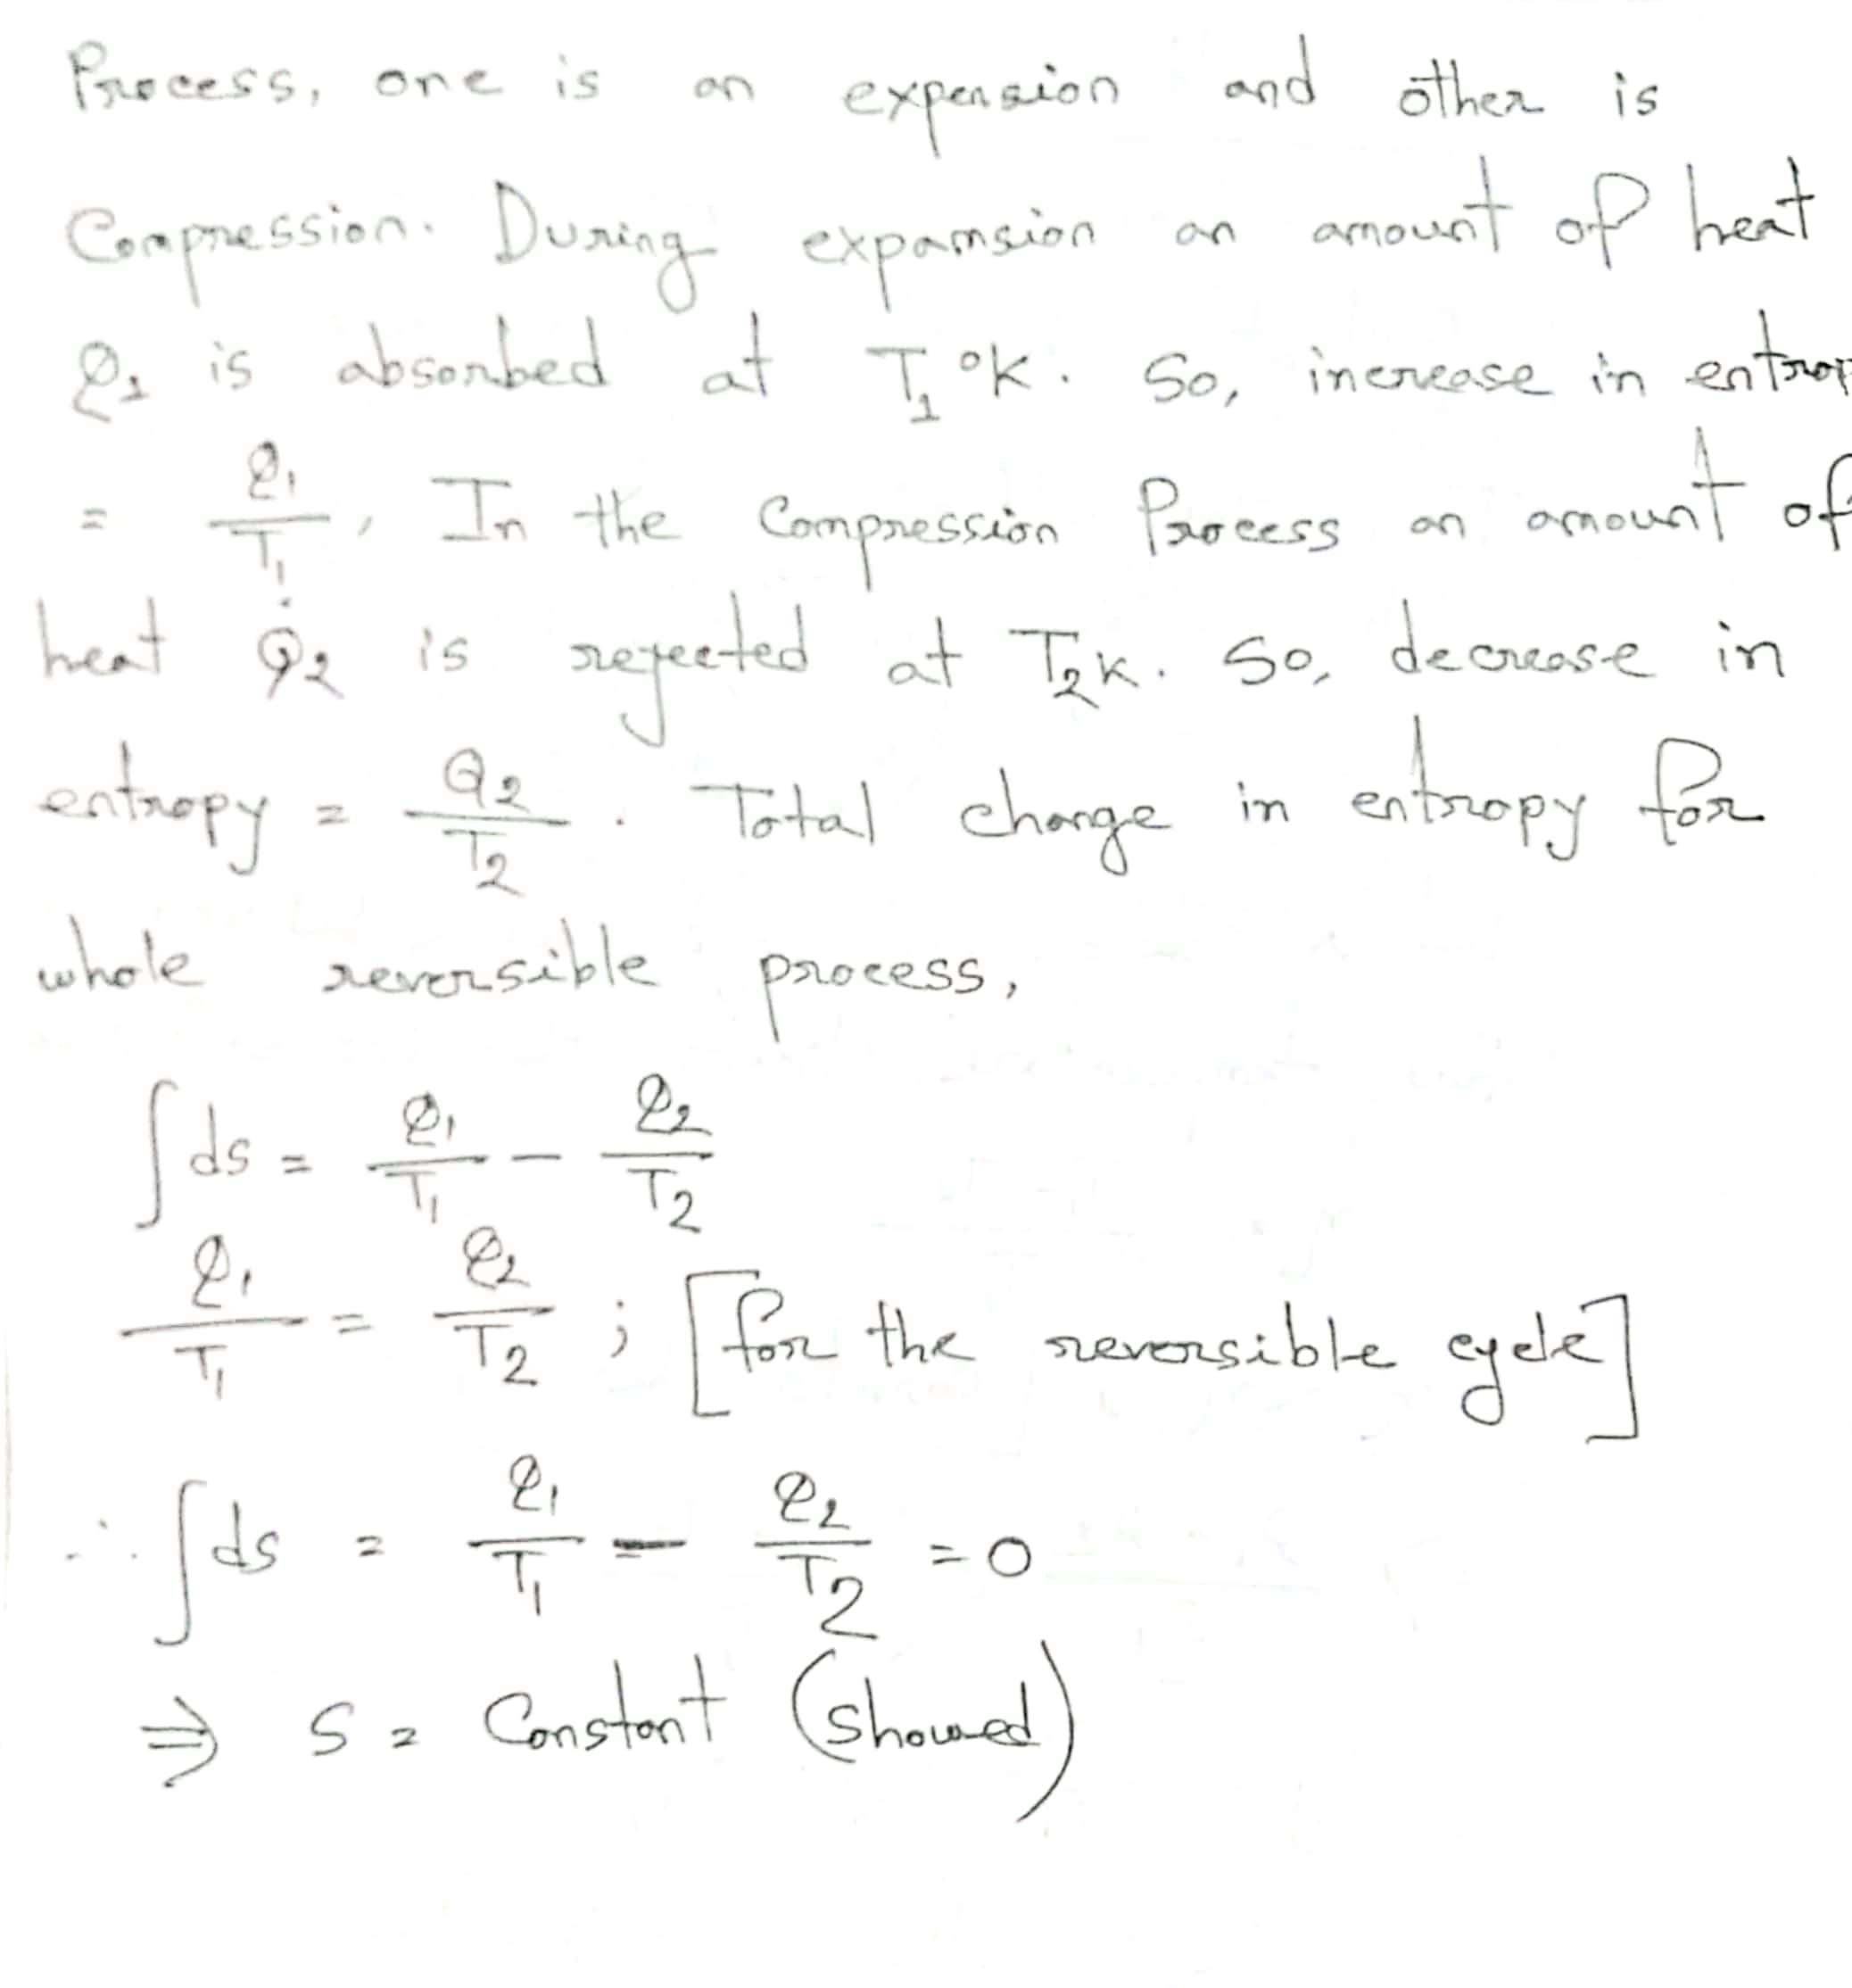 Process, one is an expension and other is
Compression. During expamsion an amount of heat
Q₁ is absorbed at T₁°K. So, increase in entrop
= Q₁/T₁, In the Compression Process an amount of
heat Q₂ is rejected at T₂K. So, decrease in
entropy = Q₂/T₂. Total change in entropy for
whole reversible process,
∫ds = Q₁/T₁ - Q₂/T₂
Q₁/T₁ = Q₂/T₂ ; [for the reversible cycle]
∴ ∫ds = Q₁/T₁ - Q₂/T₂ = 0
⇒ S = Constant (Showed)